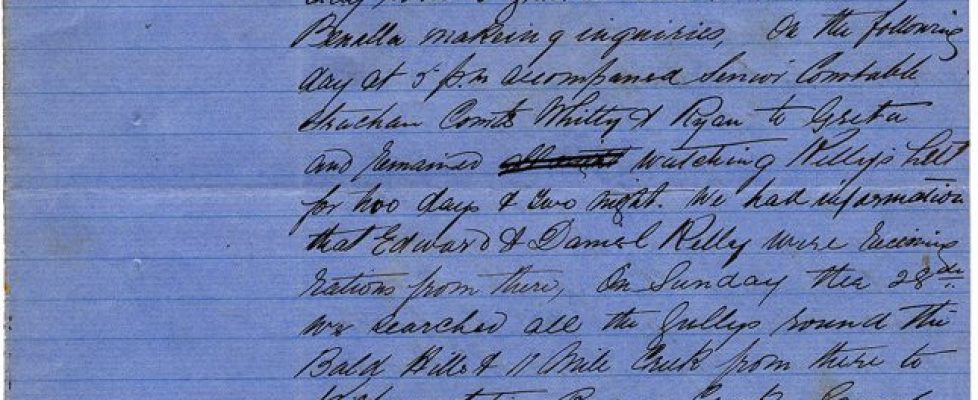 Benalla makeing inquiries, On the following
day at 5 p.m accompaned Senior Constable
Strachan Consts Whitty & Ryan to Greta
and remained watching Kellys hutt
for two days & two night. We had information
that Edward & Daniel Kelly were receiving
rations from there, On Sunday the 28th
we searched all the Gullys round the
Bald Hills & 11 Mile Creek from there to